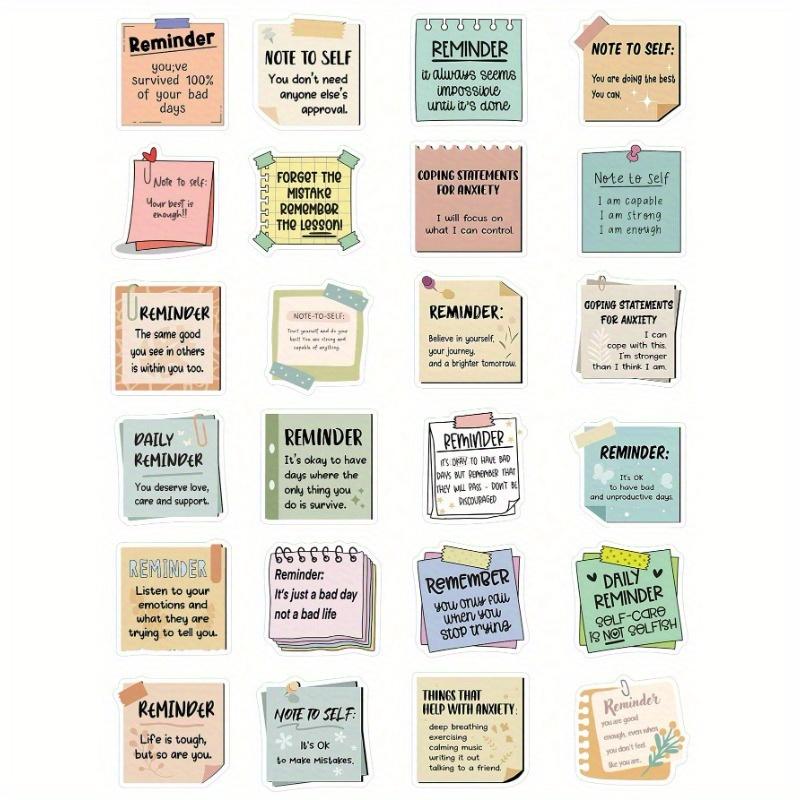 Reminder
you;ve
survived 100%
of your bad
days
NOTE TO SELF
You don't need
anyone else's
approval.
REMINDER
it always seems
impossible
until it's done
NOTE TO SELF:
You are doing the best
You can.
Note to self:
Your best is
enough!!
FORGET THE
MISTAKE
REMEMBER
THE LESSON!
COPING STATEMENTS
FOR ANXIETY
I will focus on
what I can control.
Note to self
I am capable
I am strong
I am enough
REMINDER
The same good
you see in others
is within you too.
NOTE-TO-SELF:
Trust yourself and do your
best! You are strong and
capable of anything.
REMINDER:
Believe in yourself,
your journey,
and a brighter tomorrow.
COPING STATEMENTS
FOR ANXIETY
I can
cope with this.
I'm stronger
than I think I am.
DAILY
REMINDER
You deserve love,
care and support.
REMINDER
It's okay to have
days where the
only thing you
do is survive.
REMINDER
IT'S OKAY TO HAVE BAD
DAYS BUT REMEMBER THAT
THEY WILL PASS - DON'T BE
DISCOURAGED
REMINDER:
It's OK
to have bad
and unproductive days.
REMINDER
Listen to your
emotions and
what they are
trying to tell you.
Reminder:
It's just a bad day
not a bad life
Remember
you only fail
when you
stop trying
DAILY
REMINDER
SELF-CARE
IS NOT SELFISH
REMINDER
Life is tough,
but so are you.
NOTE TO SELF:
It's OK
to Make Mistakes.
THINGS THAT
HELP WITH ANXIETY:
deep breathing
exercising
calming music
writing it out
talking to a friend.
Reminder
you are good
enough, even when
you don't feel
like you are.